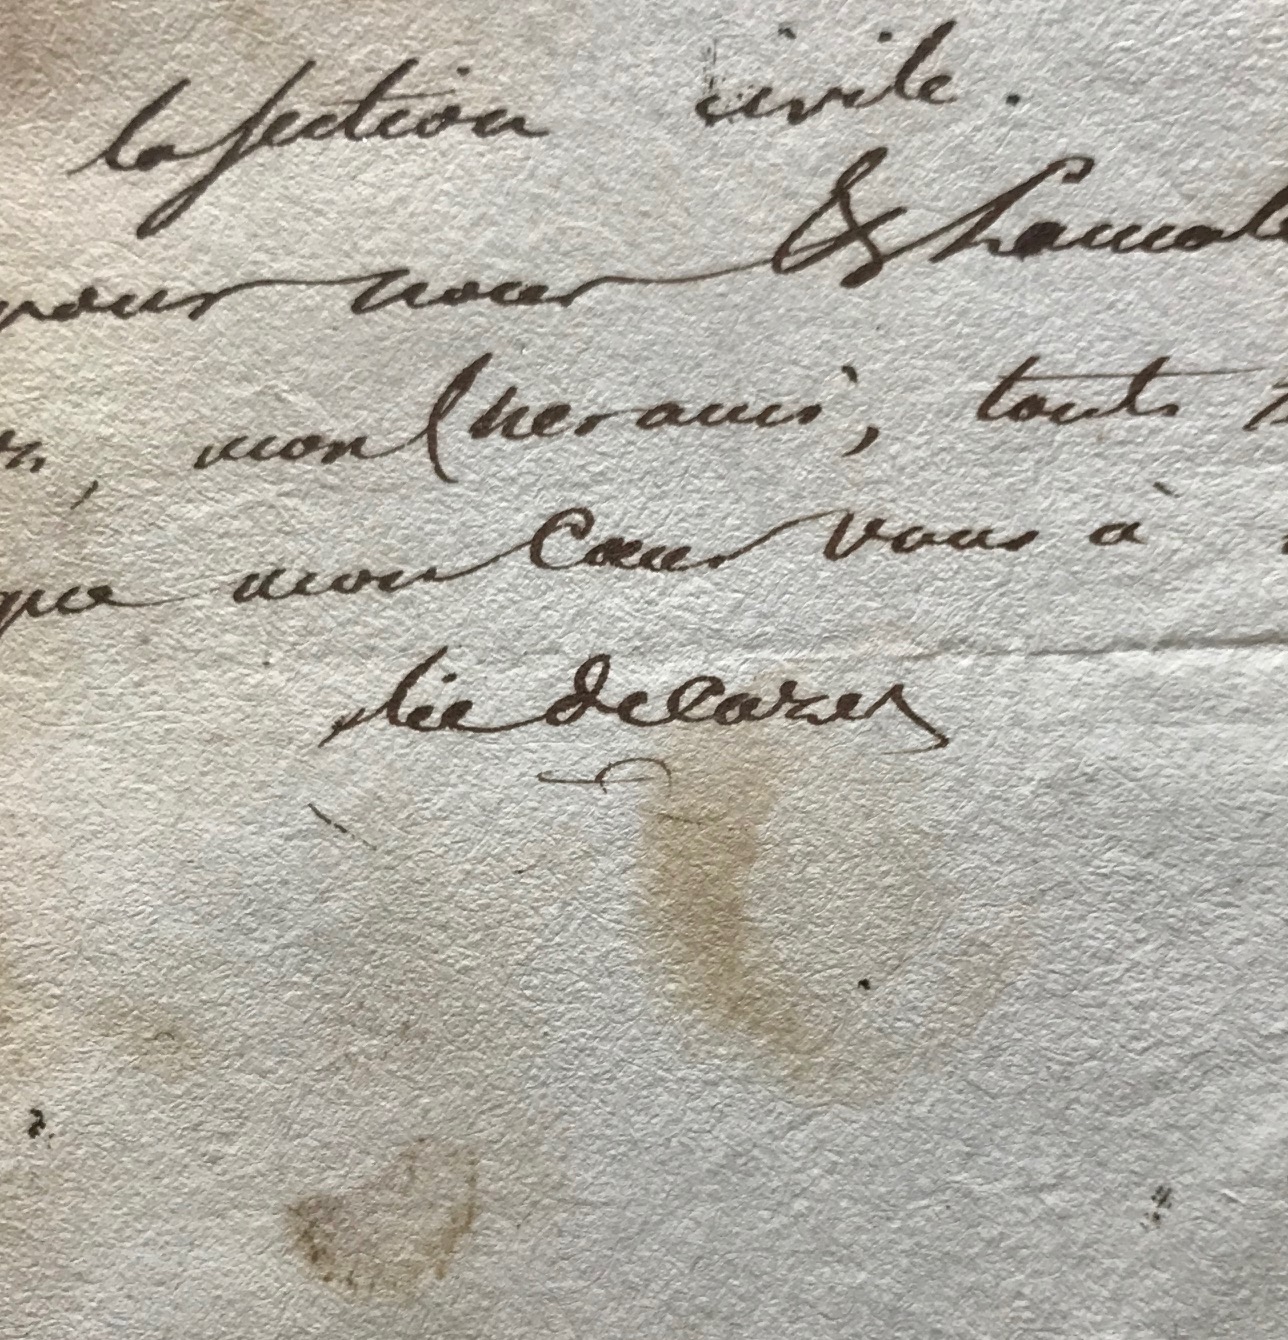 la section civile.
pour nous &
, mon Cher ami, tout
que mon Cœur vous à
Elie Decazes